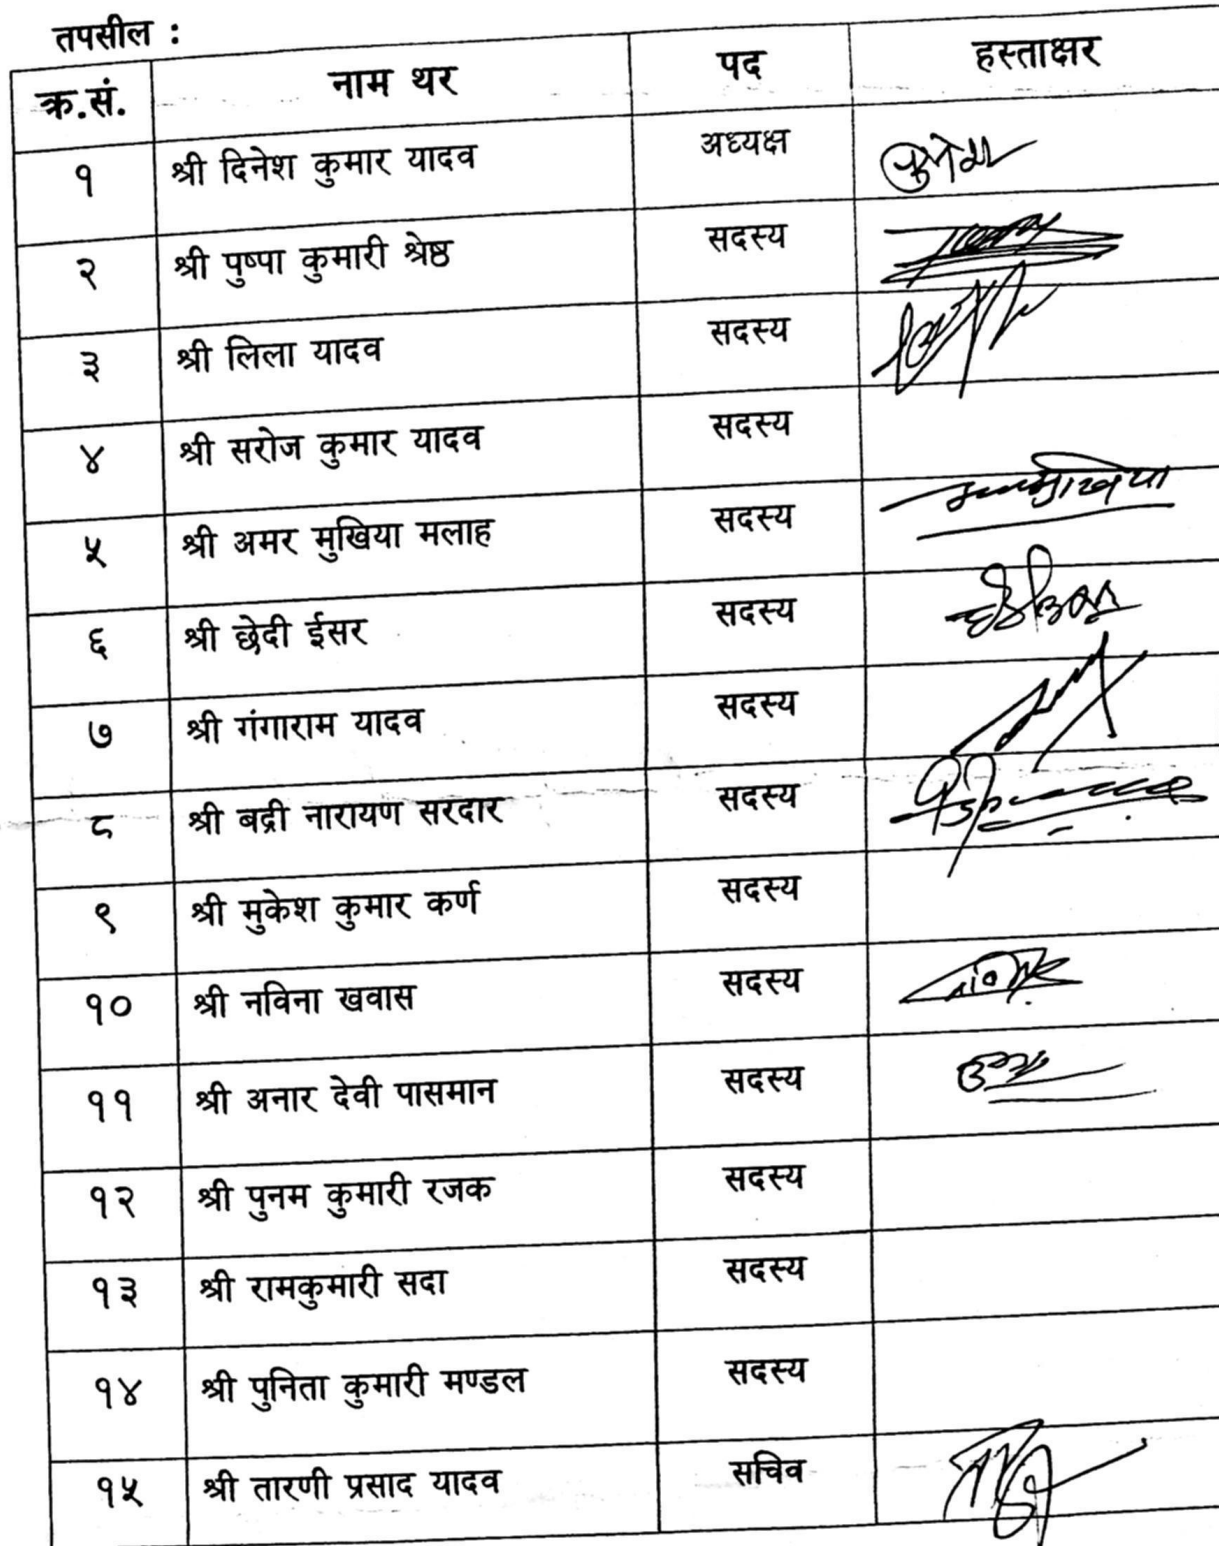 तपसील :
क्र.सं. नाम थर पद हस्ताक्षर
१ श्री दिनेश कुमार यादव अध्यक्ष
२ श्री पुष्पा कुमारी श्रेष्ठ सदस्य
३ श्री लिला यादव सदस्य
४ श्री सरोज कुमार यादव सदस्य
५ श्री अमर मुखिया मलाह सदस्य
६ श्री छेदी ईसर सदस्य
७ श्री गंगाराम यादव सदस्य
८ श्री बद्री नारायण सरदार सदस्य
९ श्री मुकेश कुमार कर्ण सदस्य
१० श्री नविना खवास सदस्य
११ श्री अनार देवी पासमान सदस्य
१२ श्री पुनम कुमारी रजक सदस्य
१३ श्री रामकुमारी सदा सदस्य
१४ श्री पुनिता कुमारी मण्डल सदस्य
१५ श्री तारणी प्रसाद यादव सचिव